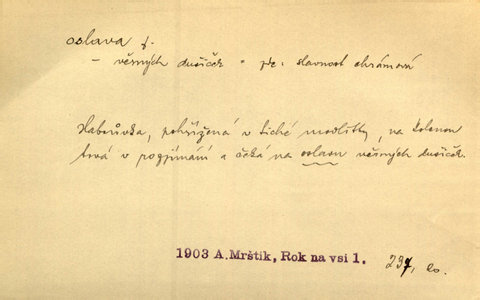 oslava f.
– věrných dušiček = př: slavnost chrámová
Habrůvka, pohřížená v tiché modlitby, na kolenou
trvá v pojímání a čeká na oslavu věrných dušiček.
1903 A. Mrštík, Rok na vsi 1. 237,